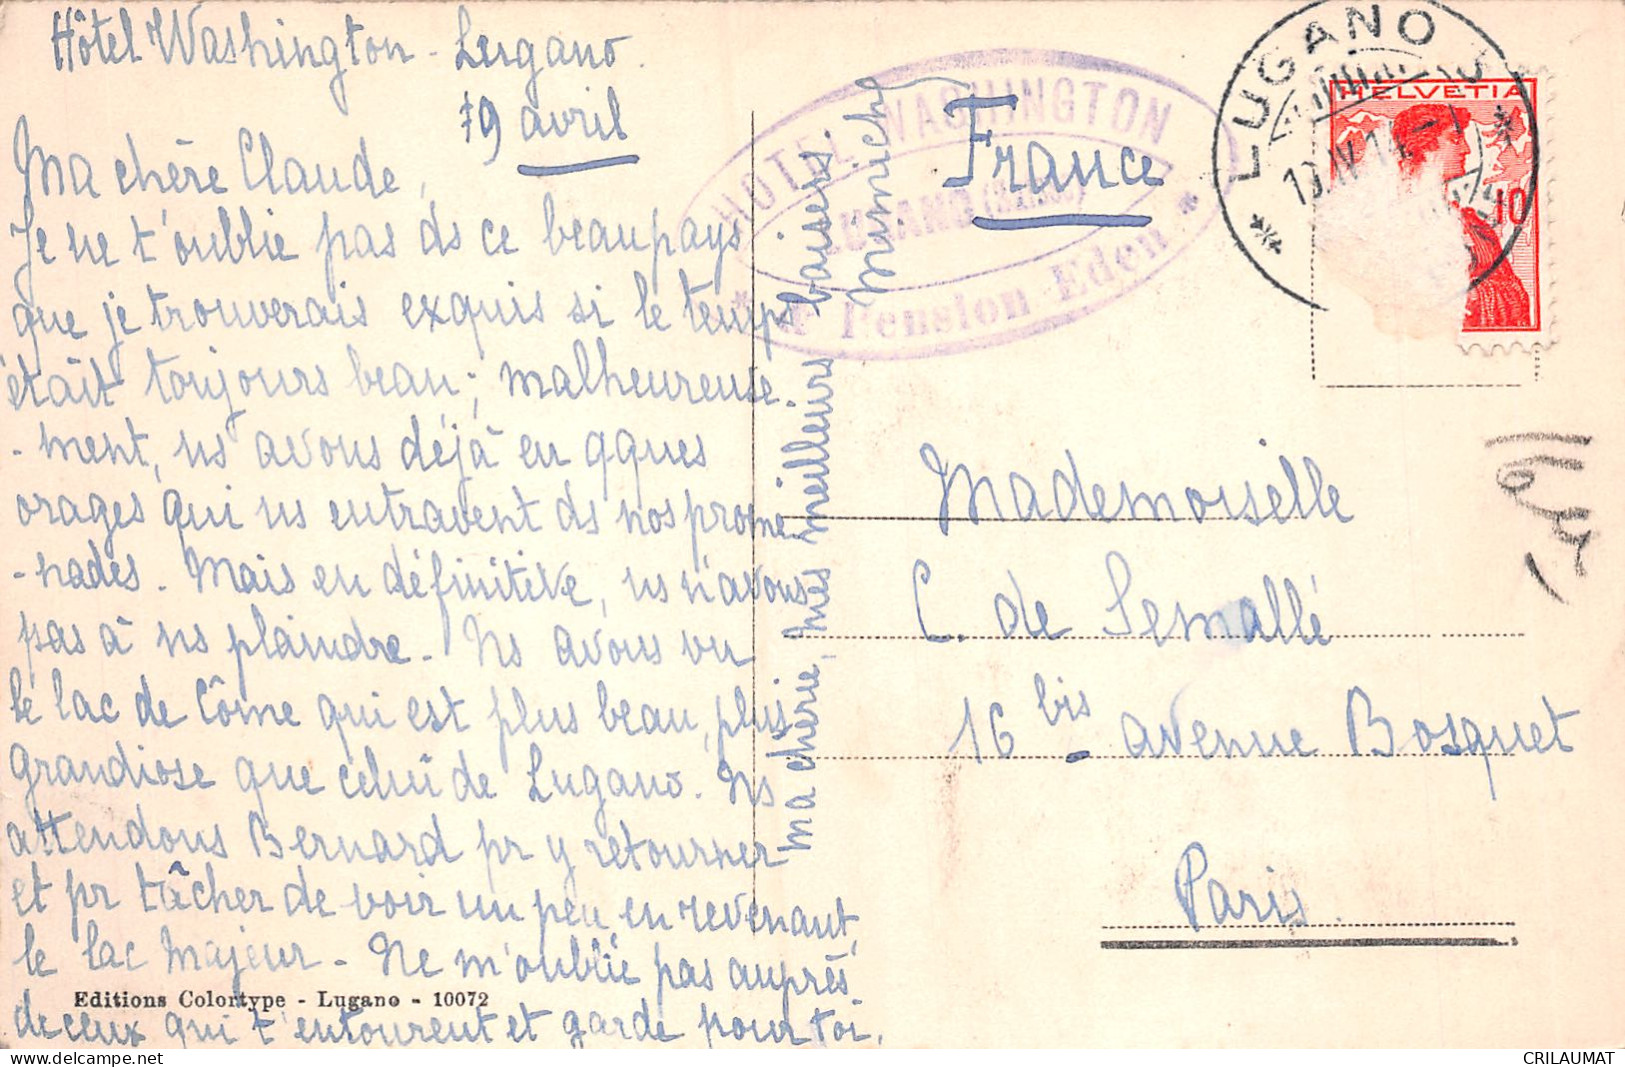 Hôtel Washington - Lugano.
19 avril
Ma chère Claude,
Je ne t'oublie pas ds ce beau pays
que je trouverais exquis si le temps
était toujours beau; malheureuse-
-ment, ns avons déjà eu qques
orages qui ns entravent ds nos prome
-nades. Mais en définitive, ns n'avons
pas à ns plaindre. Ns avons vu
le lac de Côme qui est plus beau, plus
grandiose que celui de Lugano. Ns
attendons Bernard pr y retourner
et pr tâcher de voir un peu, en revenant,
le lac Majeur - Ne m'oublie pas auprès
de ceux qui t'entourent et garde pour toi,
ma chérie, mes meilleurs baisers
Mamiche
Editions Colortype - Lugano - 10072
HOTEL WASHINGTON
LUGANO (Suisse)
* Pension Eden *
France
* LUGANO *
HELVETIA
10
Mademoiselle
C. de Semallé
16 bis avenue Bosquet
Paris
CRILAUMAT